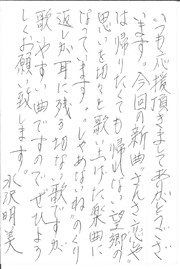 いつも応援頂きましてありがとうござ
います。今回の新曲"さんさ恋や"
は帰りたくても帰れない望郷の
思いを切々と歌い上げた楽曲に
なっています。"しゃあないね"のくり
返しが耳に残る切ない歌ですが
歌いやすい曲ですので、ぜひよろ
しくお願い致します。
水沢明美